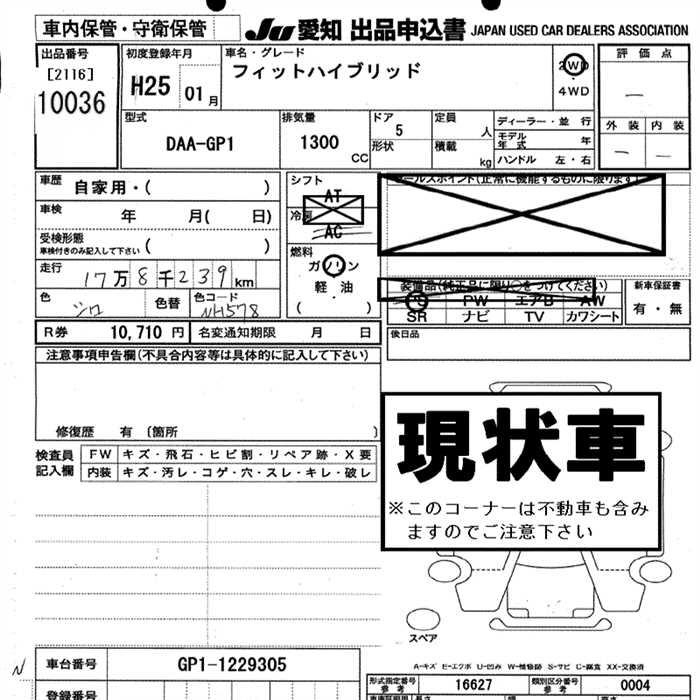 車内保管・守衛保管
JU 愛知 出品申込書 JAPAN USED CAR DEALERS ASSOCIATION
出品番号
[2116]
10036
初度登録年月
H25 01月
車名・グレード
フィットハイブリッド
2WD
・
4WD
評価点
—
外装 内装
— —
型式
DAA-GP1
排気量
1300
CC
ドア
5
形状
定員
人
積載
kg
ディーラー・並行
モデル年式 年
ハンドル 左・右
車歴 自家用・( )
車検 年 月( 日)
受検形態
車検付きのみ記入して下さい ( )
走行 17万8千239km
色 シロ
色替
色コード NH578
シフト
AT
冷房
AC
燃料
ガソリン
軽・油
( )
セールスポイント(正常に機能するものに限ります)
装備品(純正品に限り○をつけてください)
PW エアB AW
SR ナビ TV カワシート
新車保証書
有・無
R券 10,710円 名変通知期限 月 日
後日品
注意事項申告欄(不具合内容等は具体的に記入して下さい)
修復歴 有 〔箇所 〕
検査員
記入欄
FW キズ・飛石・ヒビ割・リペア跡・X要
内装 キズ・汚レ・コゲ・穴・スレ・キレ・破レ
現状車
※このコーナーは不動車も含み
ますのでご注意下さい
スペア
A-キズ E-エクボ U-凹み W-補修跡 S-サビ C-腐食 XX-交換済
N
車台番号 GP1-1229305
形式指定番号
参考
16627
類別区分番号
参考
0004
登録番号
長さ